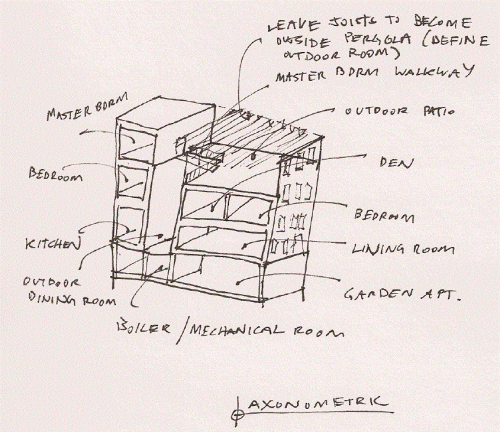 LEAVE JOISTS TO BECOME
OUTSIDE PERGOLA (DEFINE
OUTDOOR ROOM)
MASTER BDRM WALKWAY
MASTER BDRM
OUTDOOR PATIO
DEN
BEDROOM
BEDROOM
KITCHEN
LIVING ROOM
OUTDOOR
DINING ROOM
GARDEN APT.
BOILER/MECHANICAL ROOM
AXONOMETRIC